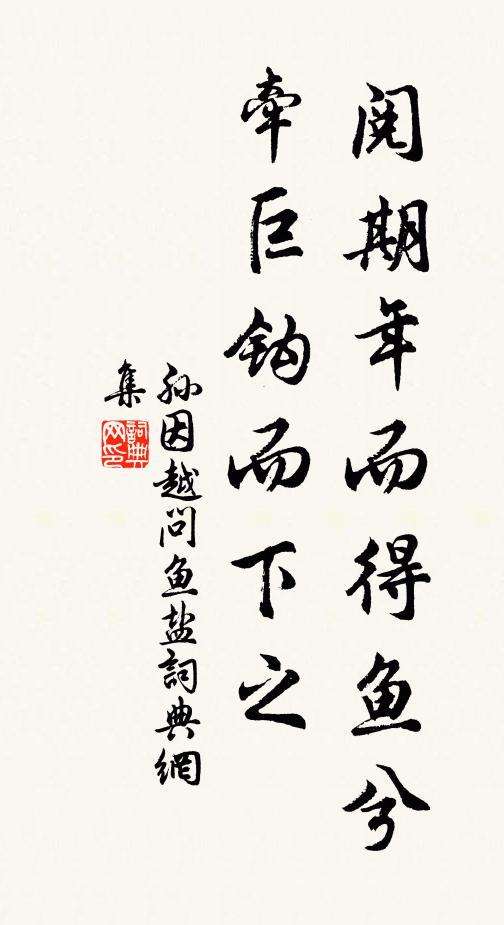 阅期年而得鱼兮
牵巨钩而下之
孙因越问鱼盐詞典網
集
詞典
网印